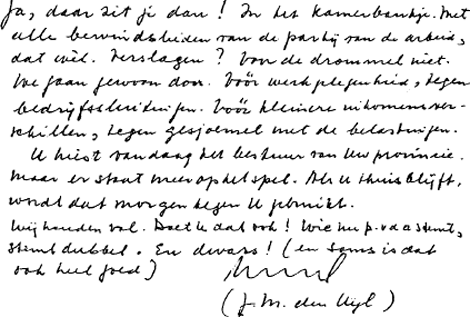 Ja, daar zit je dan! In het kamerbankje. Met
alle bewindslieden van de partij van de arbeid,
dat wel. Verslagen? Voor de drommel niet.
We gaan gewoon door. Vóór werkgelegenheid, tegen
bedrijfssluitingen. Vóór kleinere inkomensver-
schillen, tegen gesjoemel met de belastingen.
U kiest vandaag het bestuur van Uw provincie.
Maar er staat meer op het spel. Als U thuis blijft,
wordt dat morgen tegen U gebruikt.
Wij houden vol. Doet U dat ook! Wie nu p.v.d.a stemt,
stemt dubbel. En dwars! (en soms is dat
ook heel goed)
(J.M. den Uyl)